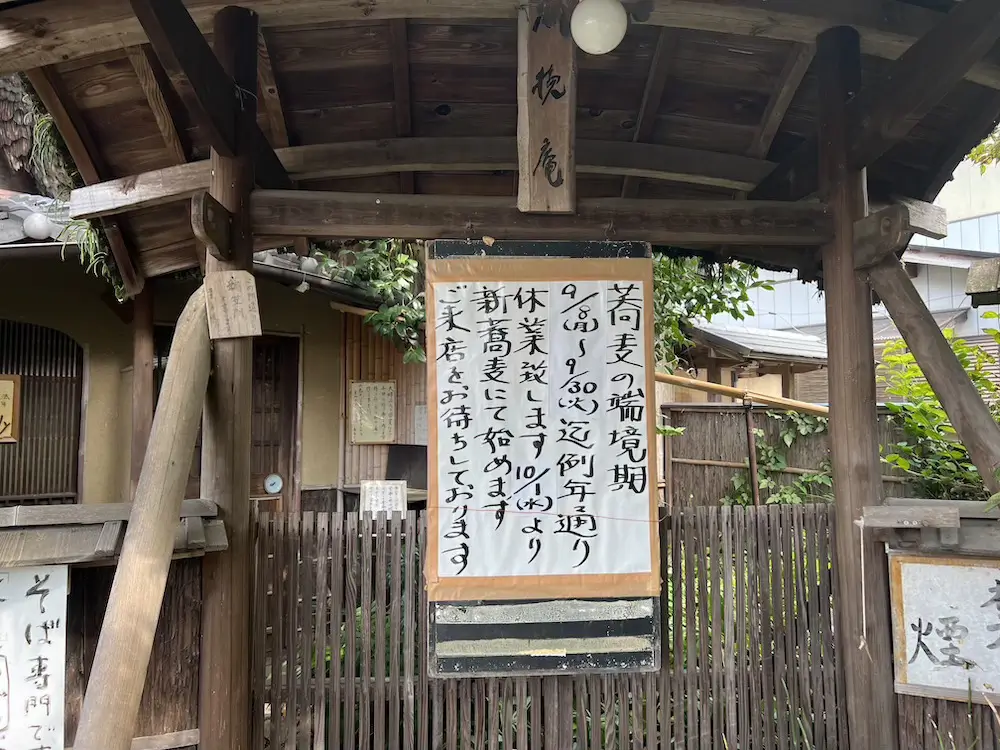 庵
蕎麦の端境期
9/8(月)〜9/30(火)迄例年通り
休業致します 10/1(水)より
新蕎麦にて始めます
ご来店をお待ちしております
そば専門で
煙